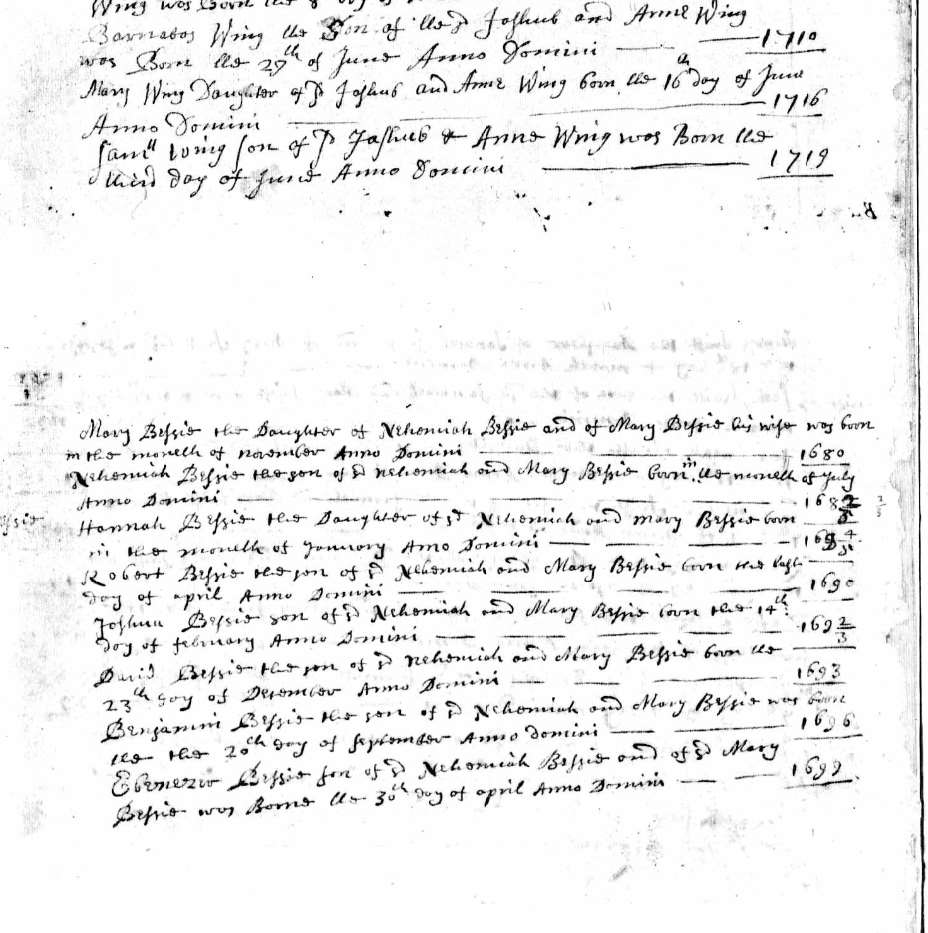 Wing was Born the 8 day of
Barnabas Wing the Son of the sd Joshub and Anne Wing
was Born the 27th of June Anno Domini 1710
Mary Wing Daughter of sd Joshub and Anne Wing born the 16th day of June
Anno Domini 1716
Samll Wing son of sd Joshub & Anne Wing was Born the
third day of June Anno Domini 1719
Mary Bessie the Daughter of Nehemiah Bessie and of Mary Bessie his wife was born
in the moneth of november Anno Domini 1680
Nehemiah Bessie the son of sd nehemiah and Mary Bessie born in the moneth of July
Anno Domini 168
Hannah Bessie the Daughter of sd Nehemiah and mary Bessie born
in the moneth of January Anno Domini 168
Robert Bessie the son of sd Nehemiah and Mary Bessie born the last
day of april Anno Domini 1690
Joshua Bessie son of sd Nehemiah and Mary Bessie born the 14th
day of february Anno Domini 169 2/3
David Bessie the son of sd nehemiah and Mary Bessie born the
23th day of Desember Anno Domini 1693
Benjamin Bessie the son of sd Nehemiah and Mary Bessie was born
the the 20th day of september Anno domini 1696
Ebenezer Bessie son of sd Nehemiah Bessie and of sd Mary
Bessie was Borne the 30th day of april Anno Domini 1699